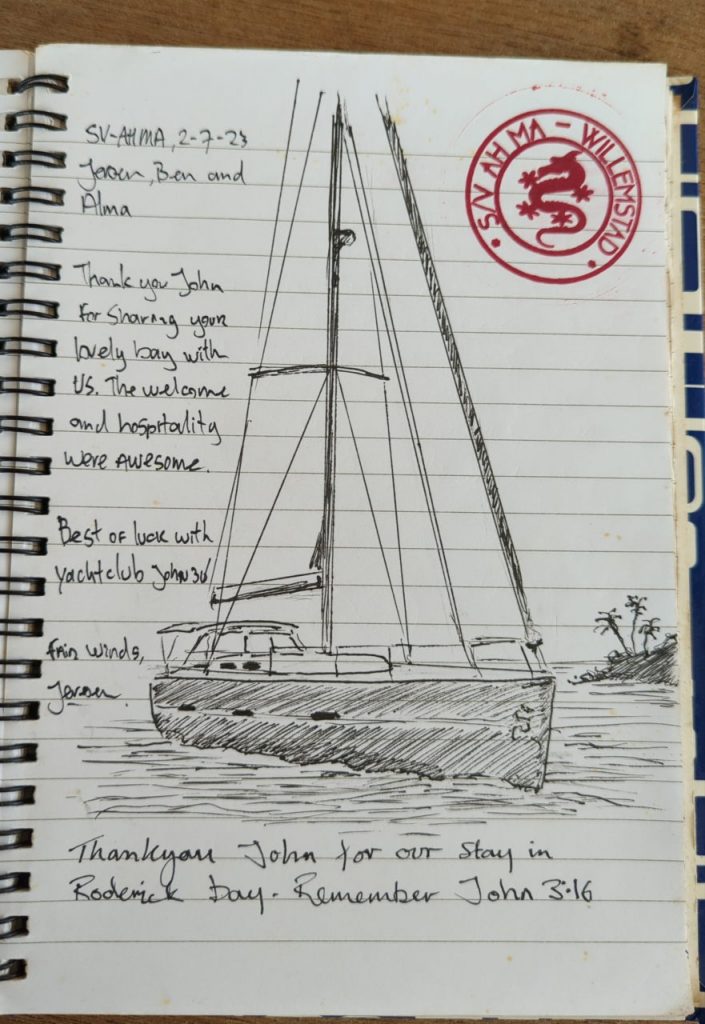 SV-AHMA, 2-7-23
Jeroen, Ben and
Alma
S/V AHMA - WILLEMSTAD
Thank you John
For Sharing your
lovely bay with
US. The welcome
and hospitality
were AWesome.
Best of luck with
Yachtclub John 316
Fair Winds,
Jeroen.
Thankyou John for our stay in
Roderick Bay. Remember John 3:16